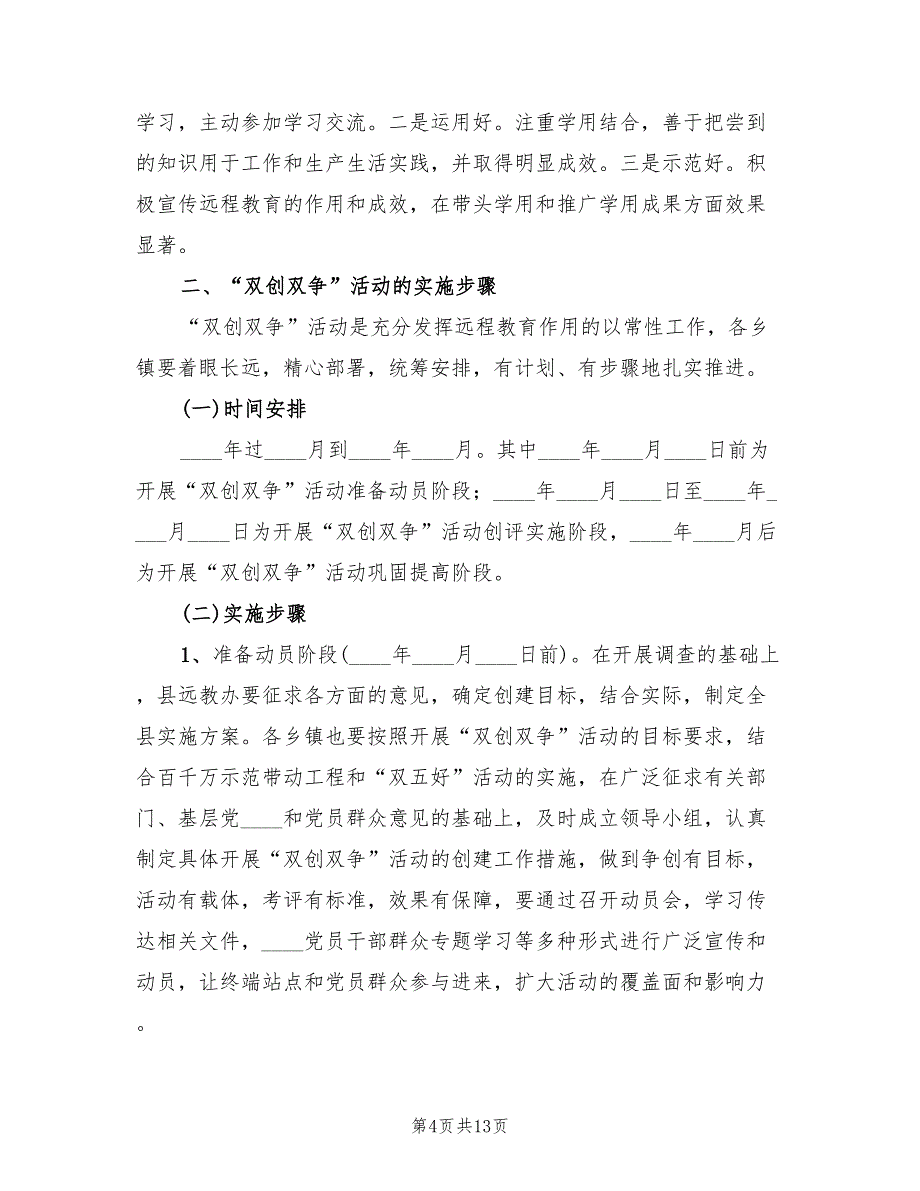 学习，主动参加学习交流。二是运用好。注重学用结合，善于把尝到
的知识用于工作和生产生活实践，并取得明显成效。三是示范好。积
极宣传远程教育的作用和成效，在带头学用和推广学用成果方面效果
显著。
二、“双创双争”活动的实施步骤
“双创双争”活动是充分发挥远程教育作用的以常性工作，各乡
镇要着眼长远，精心部署，统筹安排，有计划、有步骤地扎实推进。
(一)时间安排
____年过____月到____年____月。其中____年____月____日前为
开展“双创双争”活动准备动员阶段；____年____月____日至____年_
___月____日为开展“双创双争”活动创评实施阶段，____年____月后
为开展“双创双争”活动巩固提高阶段。
(二)实施步骤
1、准备动员阶段(____年____月____日前)。在开展调查的基础上
，县远教办要征求各方面的意见，确定创建目标，结合实际，制定全
县实施方案。各乡镇也要按照开展“双创双争”活动的目标要求，结
合百千万示范带动工程和“双五好”活动的实施，在广泛征求有关部
门、基层党____和党员群众意见的基础上，及时成立领导小组，认真
制定具体开展“双创双争”活动的创建工作措施，做到争创有目标，
活动有载体，考评有标准，效果有保障，要通过召开动员会，学习传
达相关文件，____党员干部群众专题学习等多种形式进行广泛宣传和
动员，让终端站点和党员群众参与进来，扩大活动的覆盖面和影响力
。
第4页共13页